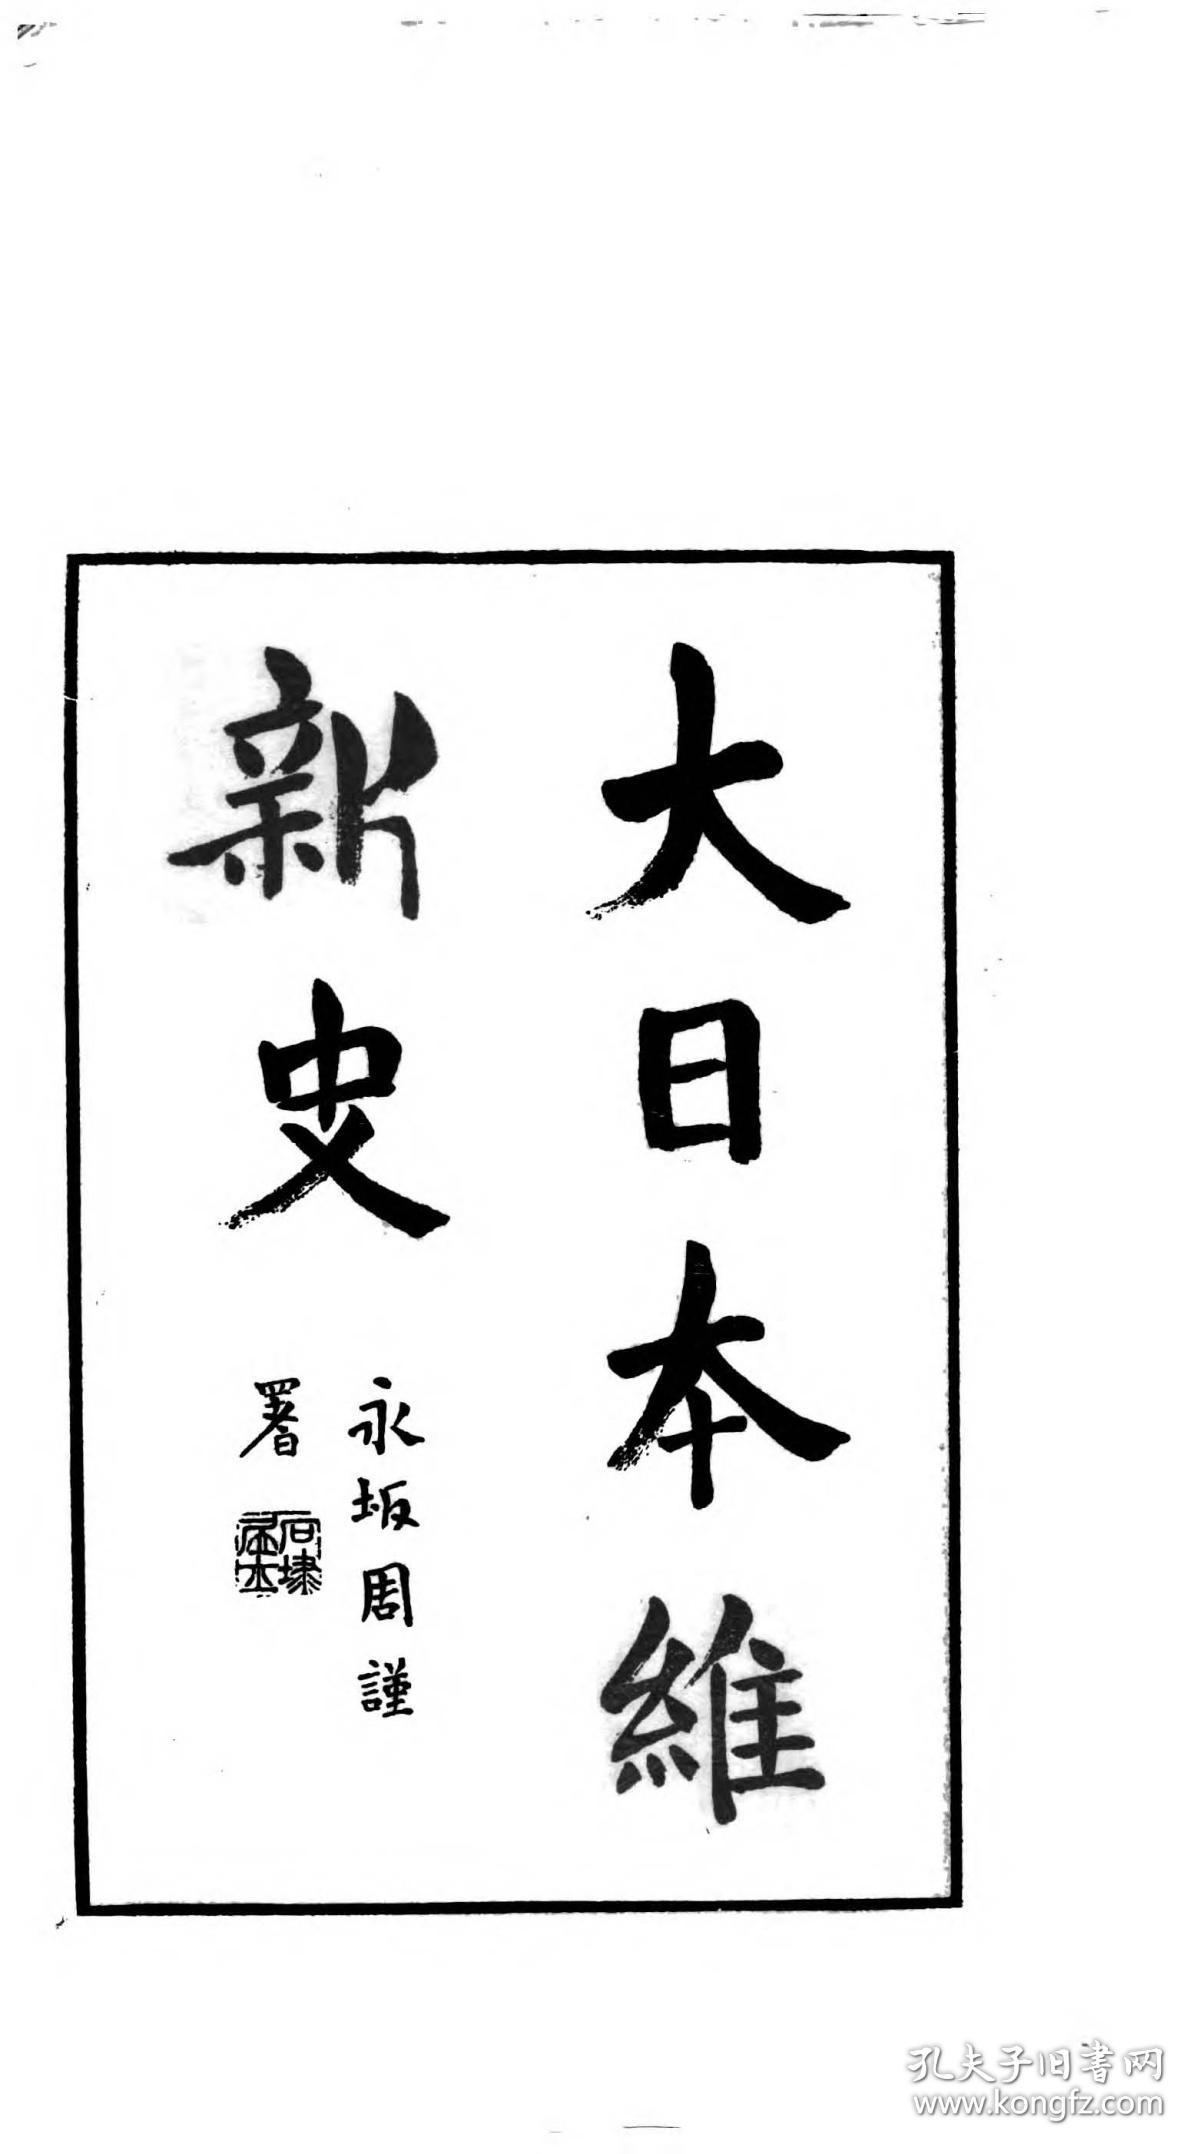 大日本維
新史
永坂周謹
署
石埭居士
孔夫子旧書网
www.kongfz.com